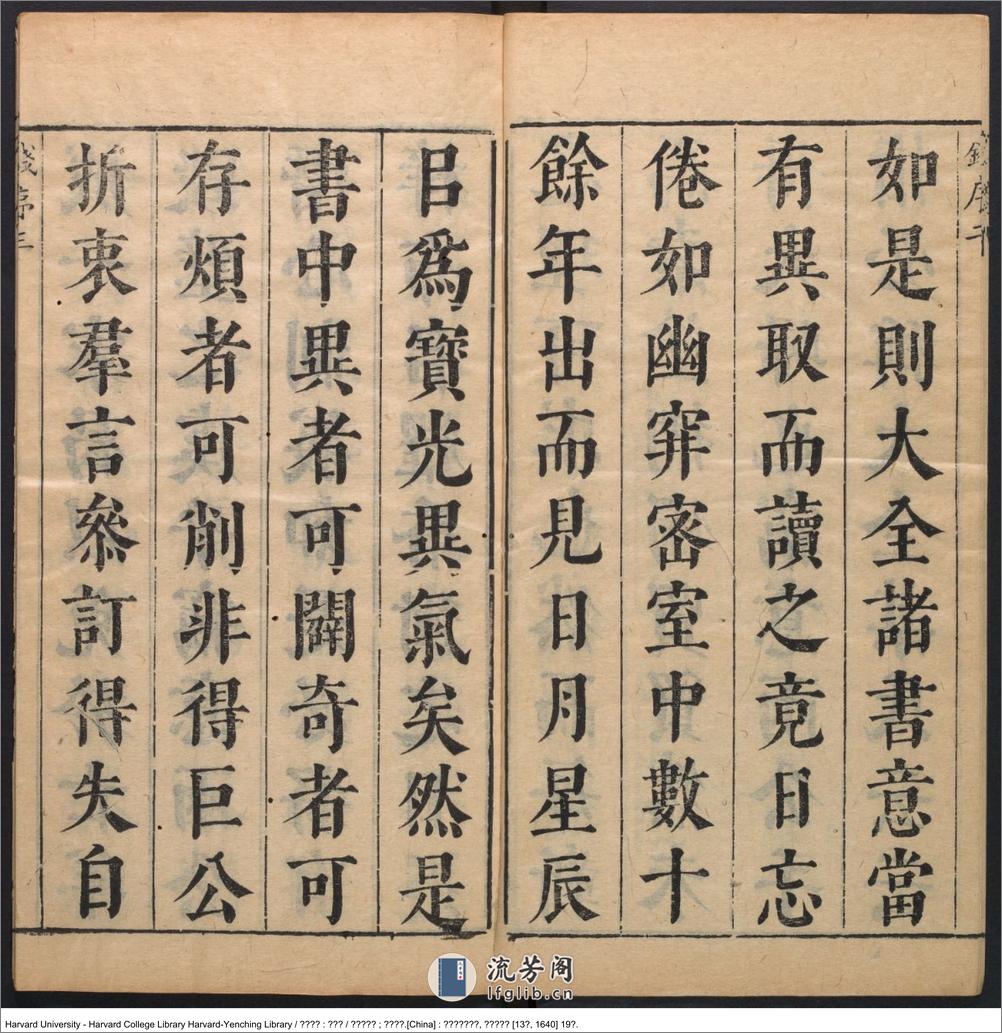 如是則大全諸書意當
有異取而讀之竟日忘
倦如幽穽密室中數十
餘年出而見日月星辰
㠯爲寶光異氣矣然是
書中異者可闢奇者可
存煩者可削非得巨公
折衷羣言叅訂得失自
序三
流芳阁
lfglib.cn
Harvard University - Harvard College Library Harvard-Yenching Library / ???? : ??? / ????? ; ????.[China] : ???????, ????? [13?, 1640] 19?.